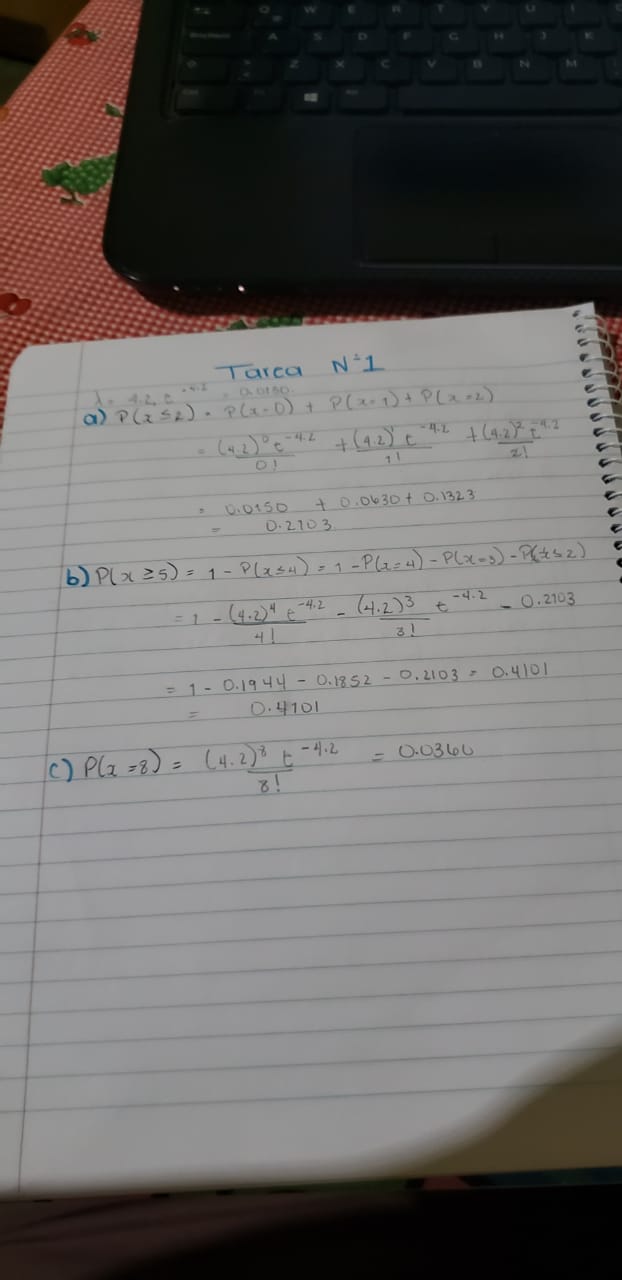 Q W E R T Y U I
A S D F G H J K
Z X C V B N M
Tarea N°1
λ = 4.2, e^-4.2 = 0.0150.
a) P(x ≤ 2) = P(x=0) + P(x=1) + P(x=2)
= (4.2)^0 e^-4.2 / 0! + (4.2)^1 e^-4.2 / 1! + (4.2)^2 e^-4.2 / 2!
= 0.0150 + 0.0630 + 0.1323
= 0.2103
b) P(x ≥ 5) = 1 - P(x ≤ 4) = 1 - P(x=4) - P(x=3) - P(x ≤ 2)
= 1 - (4.2)^4 e^-4.2 / 4! - (4.2)^3 e^-4.2 / 3! - 0.2103
= 1 - 0.1944 - 0.1852 - 0.2103 = 0.4101
= 0.4101
c) P(x = 8) = (4.2)^8 e^-4.2 / 8! = 0.0360